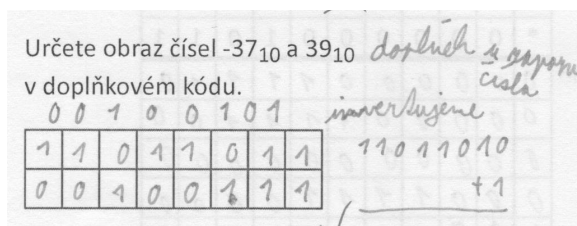 Určete obraz čísel -37₁₀ a 39₁₀ doplněk u záporn
v doplňkovém kódu. čísla
0 0 1 0 0 1 0 1 invertujeme
1 1 0 1 1 0 1 1 11011010
0 0 1 0 0 1 1 1 +1